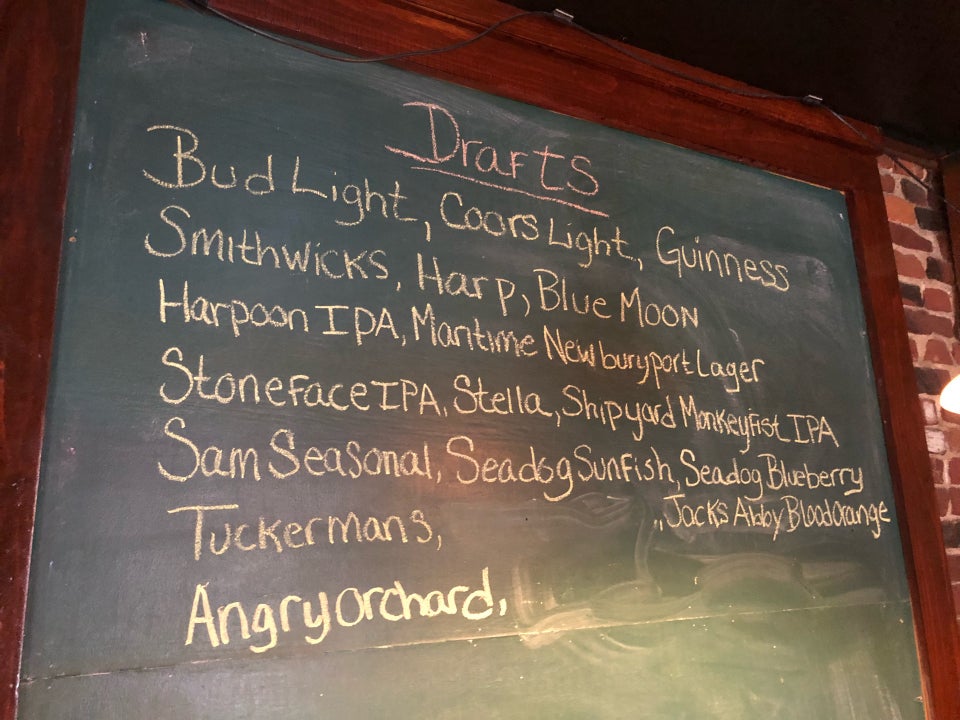 Drafts
Bud Light, Coors Light, Guinness
Smithwicks, Harp, Blue Moon
Harpoon IPA, Maritime Newburyport Lager
Stoneface IPA, Stella, Shipyard Monkey Fist IPA
Sam Seasonal, Seadog Sunfish, Seadog Blueberry
Tuckermans, ,,Jacks Abby Blood Orange
Angry orchard,